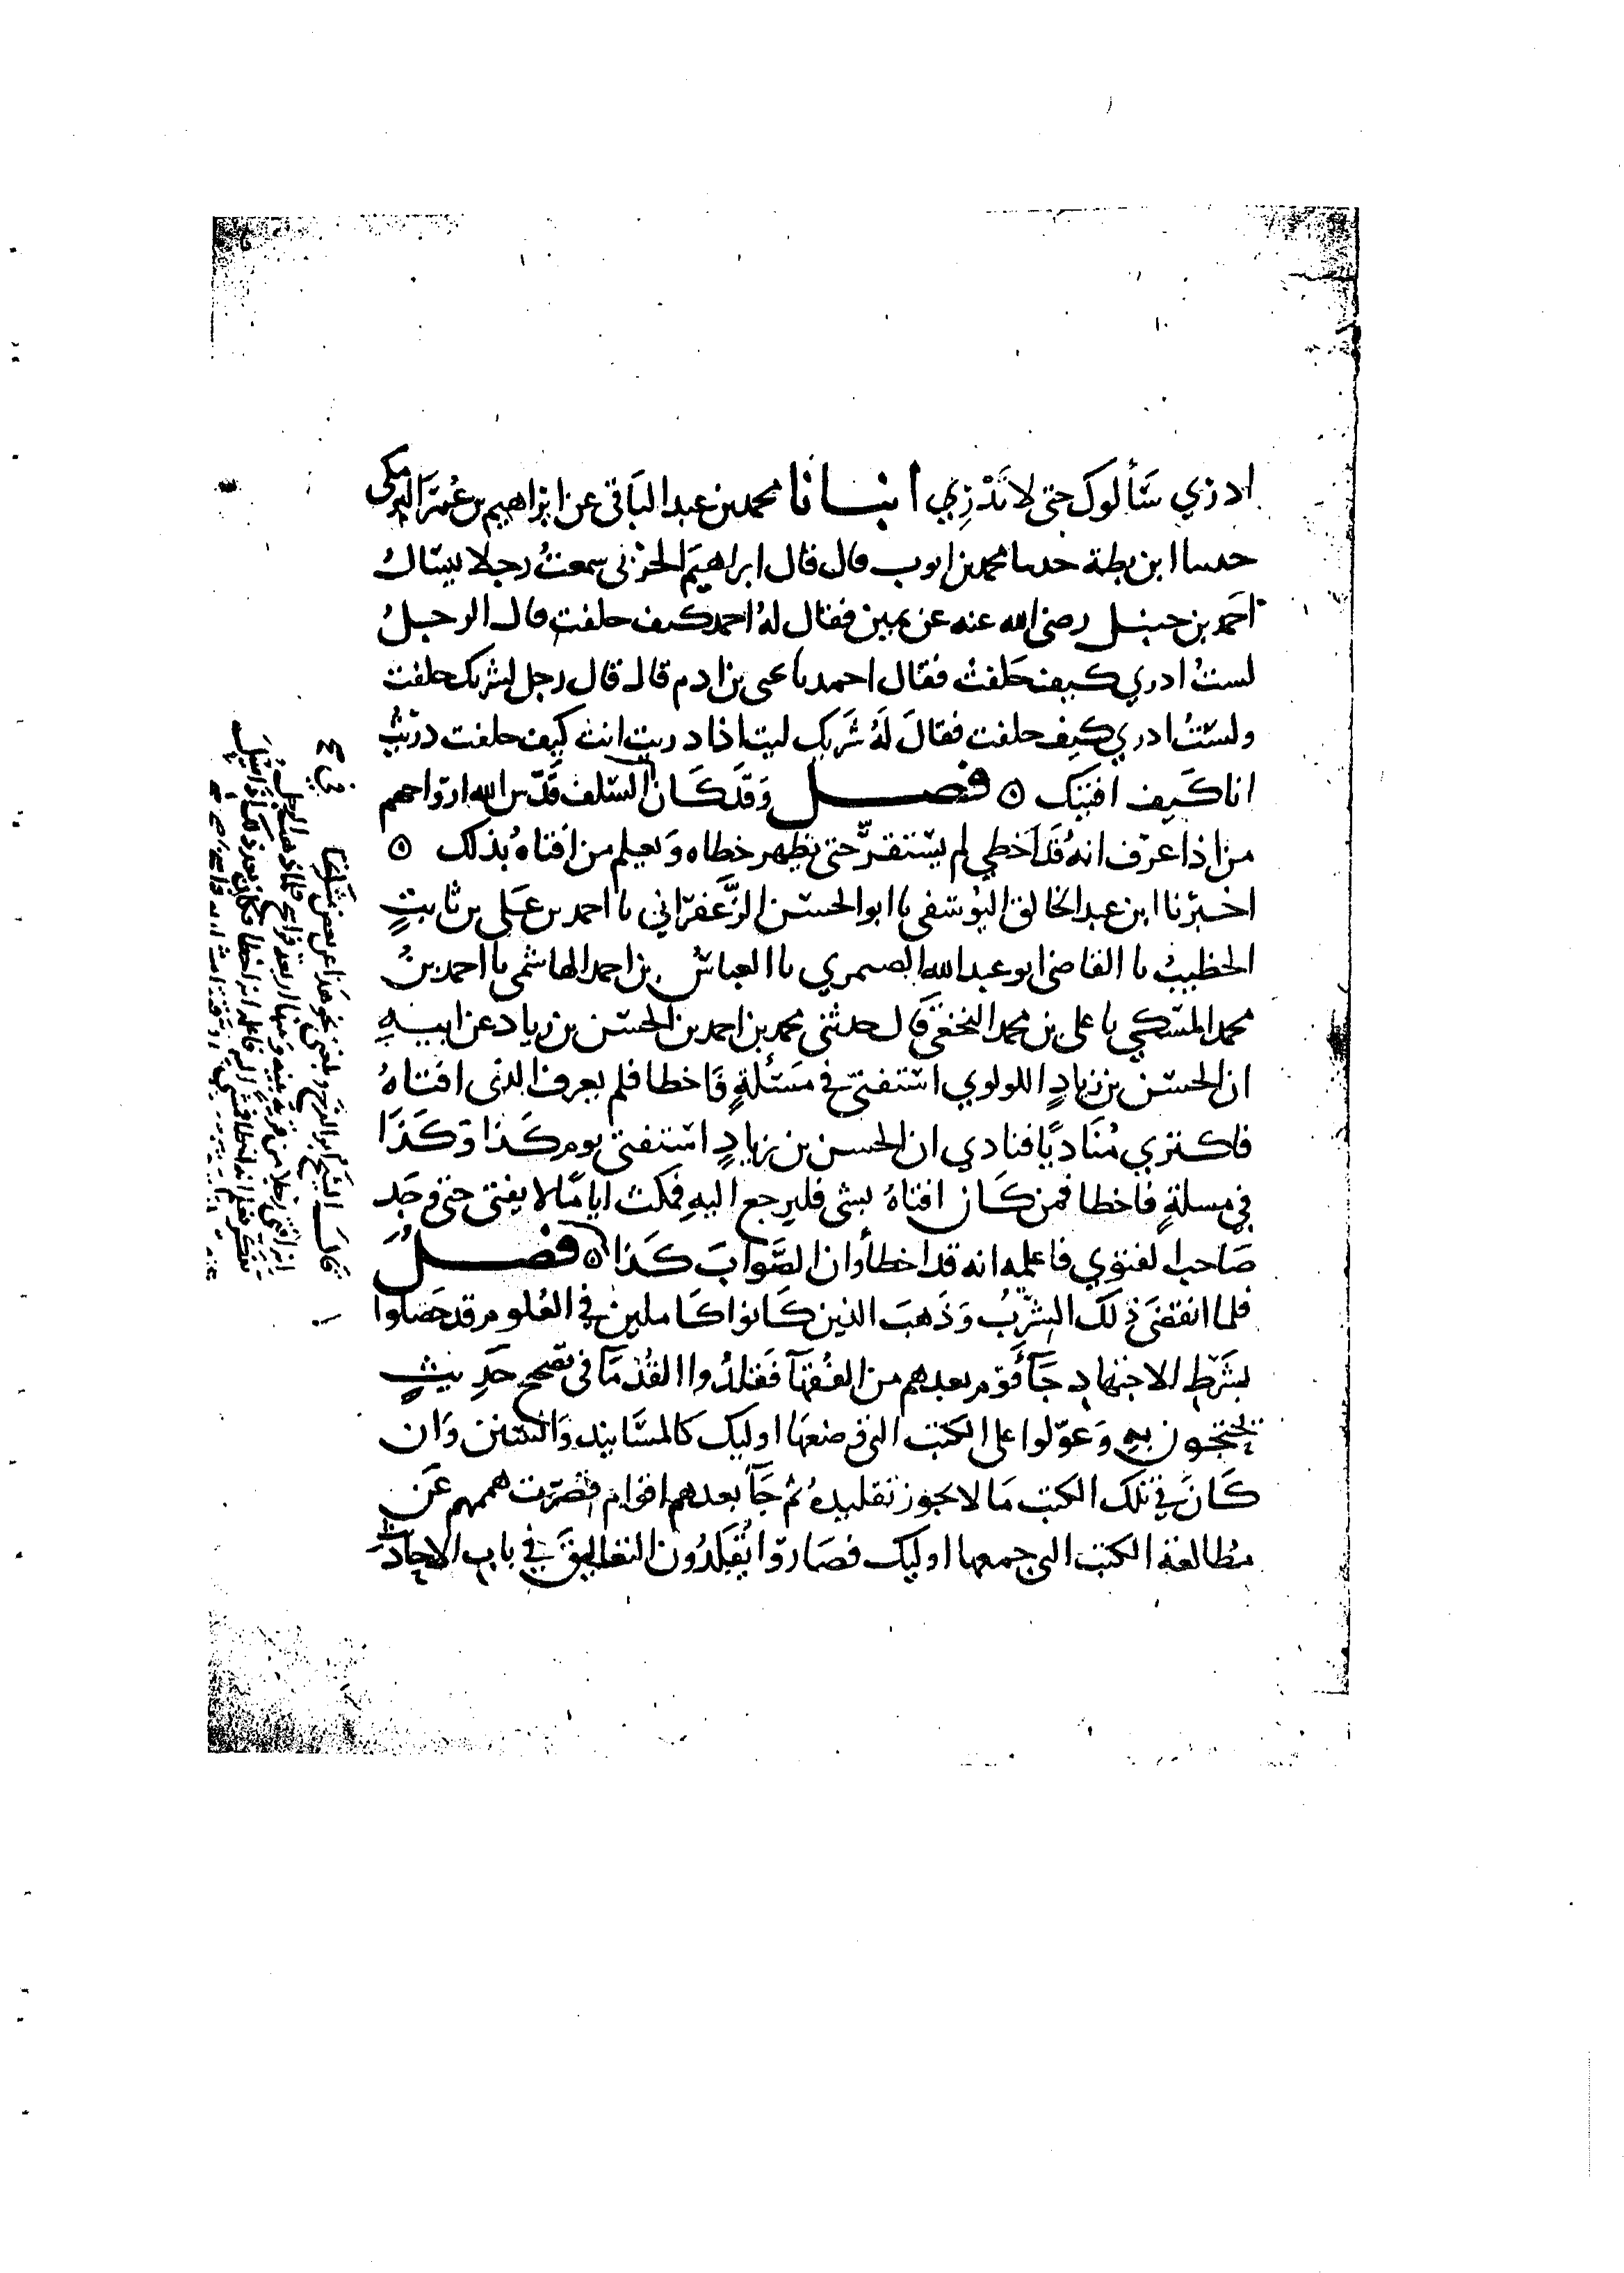 ادري سَألوك حتى لا تَدْرِي انبانا محمد بن عبد الباقى عن ابراهيم بن عُمر البرمكى
حدسا ابن بطة حدسا محمد بن ايوب قال قال ابراهيمَ الحَرْبى سمعتُ رجلا يسال
احمد بن حنبل رضى الله عنه عن يمين فقال لهُ احمد كيف حلفت قال الرجلُ
لستُ ادري كيف حَلفتُ فقال احمد با يحيى بن ادم قال قال رجل لشريك حلفت
ولستُ ادري كيف حلفت فقالَ لَهُ شَريك ليت اذا دريت انت كيف حلفت دريتُ
انا كَيف افتيك ه فصل وَقَد كَان السّلف قَدّس الله ارواحهم
من اذا عرَف انهُ قَد اَخطي لم يستقرّ حتى يُظهر خطاه وَيعلم من افتاهُ بذلك ه
اخبرنا ابن عبد الخالق اليُوسُفى با ابو الحسَن الزَّعفرَاني با احمد بن عَلى بن ثابتٍ
الخطيبُ با القاضى ابو عبد الله الصيمري با العباسُ بن احمد الهاشمى با احمد بنُ
محمد المسكي با على بن محمد النخعي قَال حدثنى محمد بن احمد بن الحسَن بن زياد عن ابيهِ
ان الحسَن بن زيادٍ اللولوي استفتى في مَسئلةٍ فَاخطا فلم يعرف الذى افتاهُ
فاكتري مُنَاديًا فنادي ان الحسن بن زيادٍ استفتى يوم كَذا وَكَذَا
في مسلةٍ فاخطا فمن كَان افتاهُ بشى فليرجع اليهِ فمكث ايامًا لا يفتى حتى وجَد
صَاحب الفتوي فاعلمه انه قد اخطأ وان الصَّوابَ كَذا ه فصلُ
فلما انقضَى ذلكَ الشربُ وَذَهبَ الذين كَانوا كَاملين في العُلوم قد حَصلوا
بشَرْطِ الاجتهادِ جَآ قَوم بعدهم من الفُقهآ فَقلدُوا القُدمَآ فى تصحيح حَدِيثٍ
يحتجون بهِ وَعَوّلوا على الكتب التى وضعهَا اوليك كالمسَانيد وَالسنَن وَان
كَان في تلك الكتب مَا لا يجوز تقليدهُ ثم جَآ بعدهم اقوام قصرت هممهم عَن
مطالعة الكتب التى جمعها اوليك فصَاروا يُقلدُون التعاليق في باب الاحاديث
قالَ الشيخ ابو الفرج وبلغنى نحو هَذا عن بعض مشايخنا